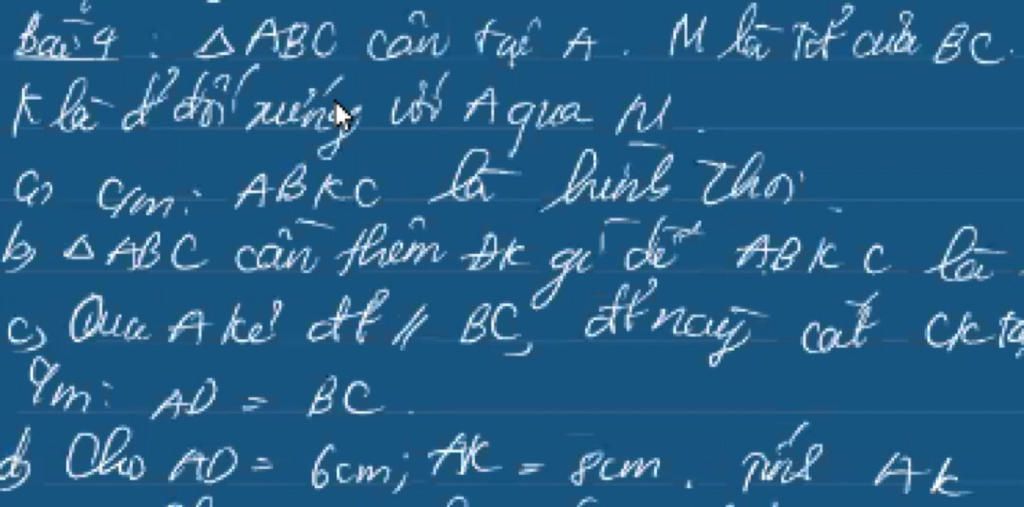 Bài 4 : △ABC cân tại A . M là TĐ của BC.
K là đ' đối xứng với A qua M .
a) Cm: ABKC là hình thoi
b) △ABC cần thêm ĐK gì để ABKC là
c) Qua A kẻ đt // BC, đt này cắt CK tạ
Cm: AD = BC .
d) Cho AD = 6cm; AC = 8cm . Tính AK